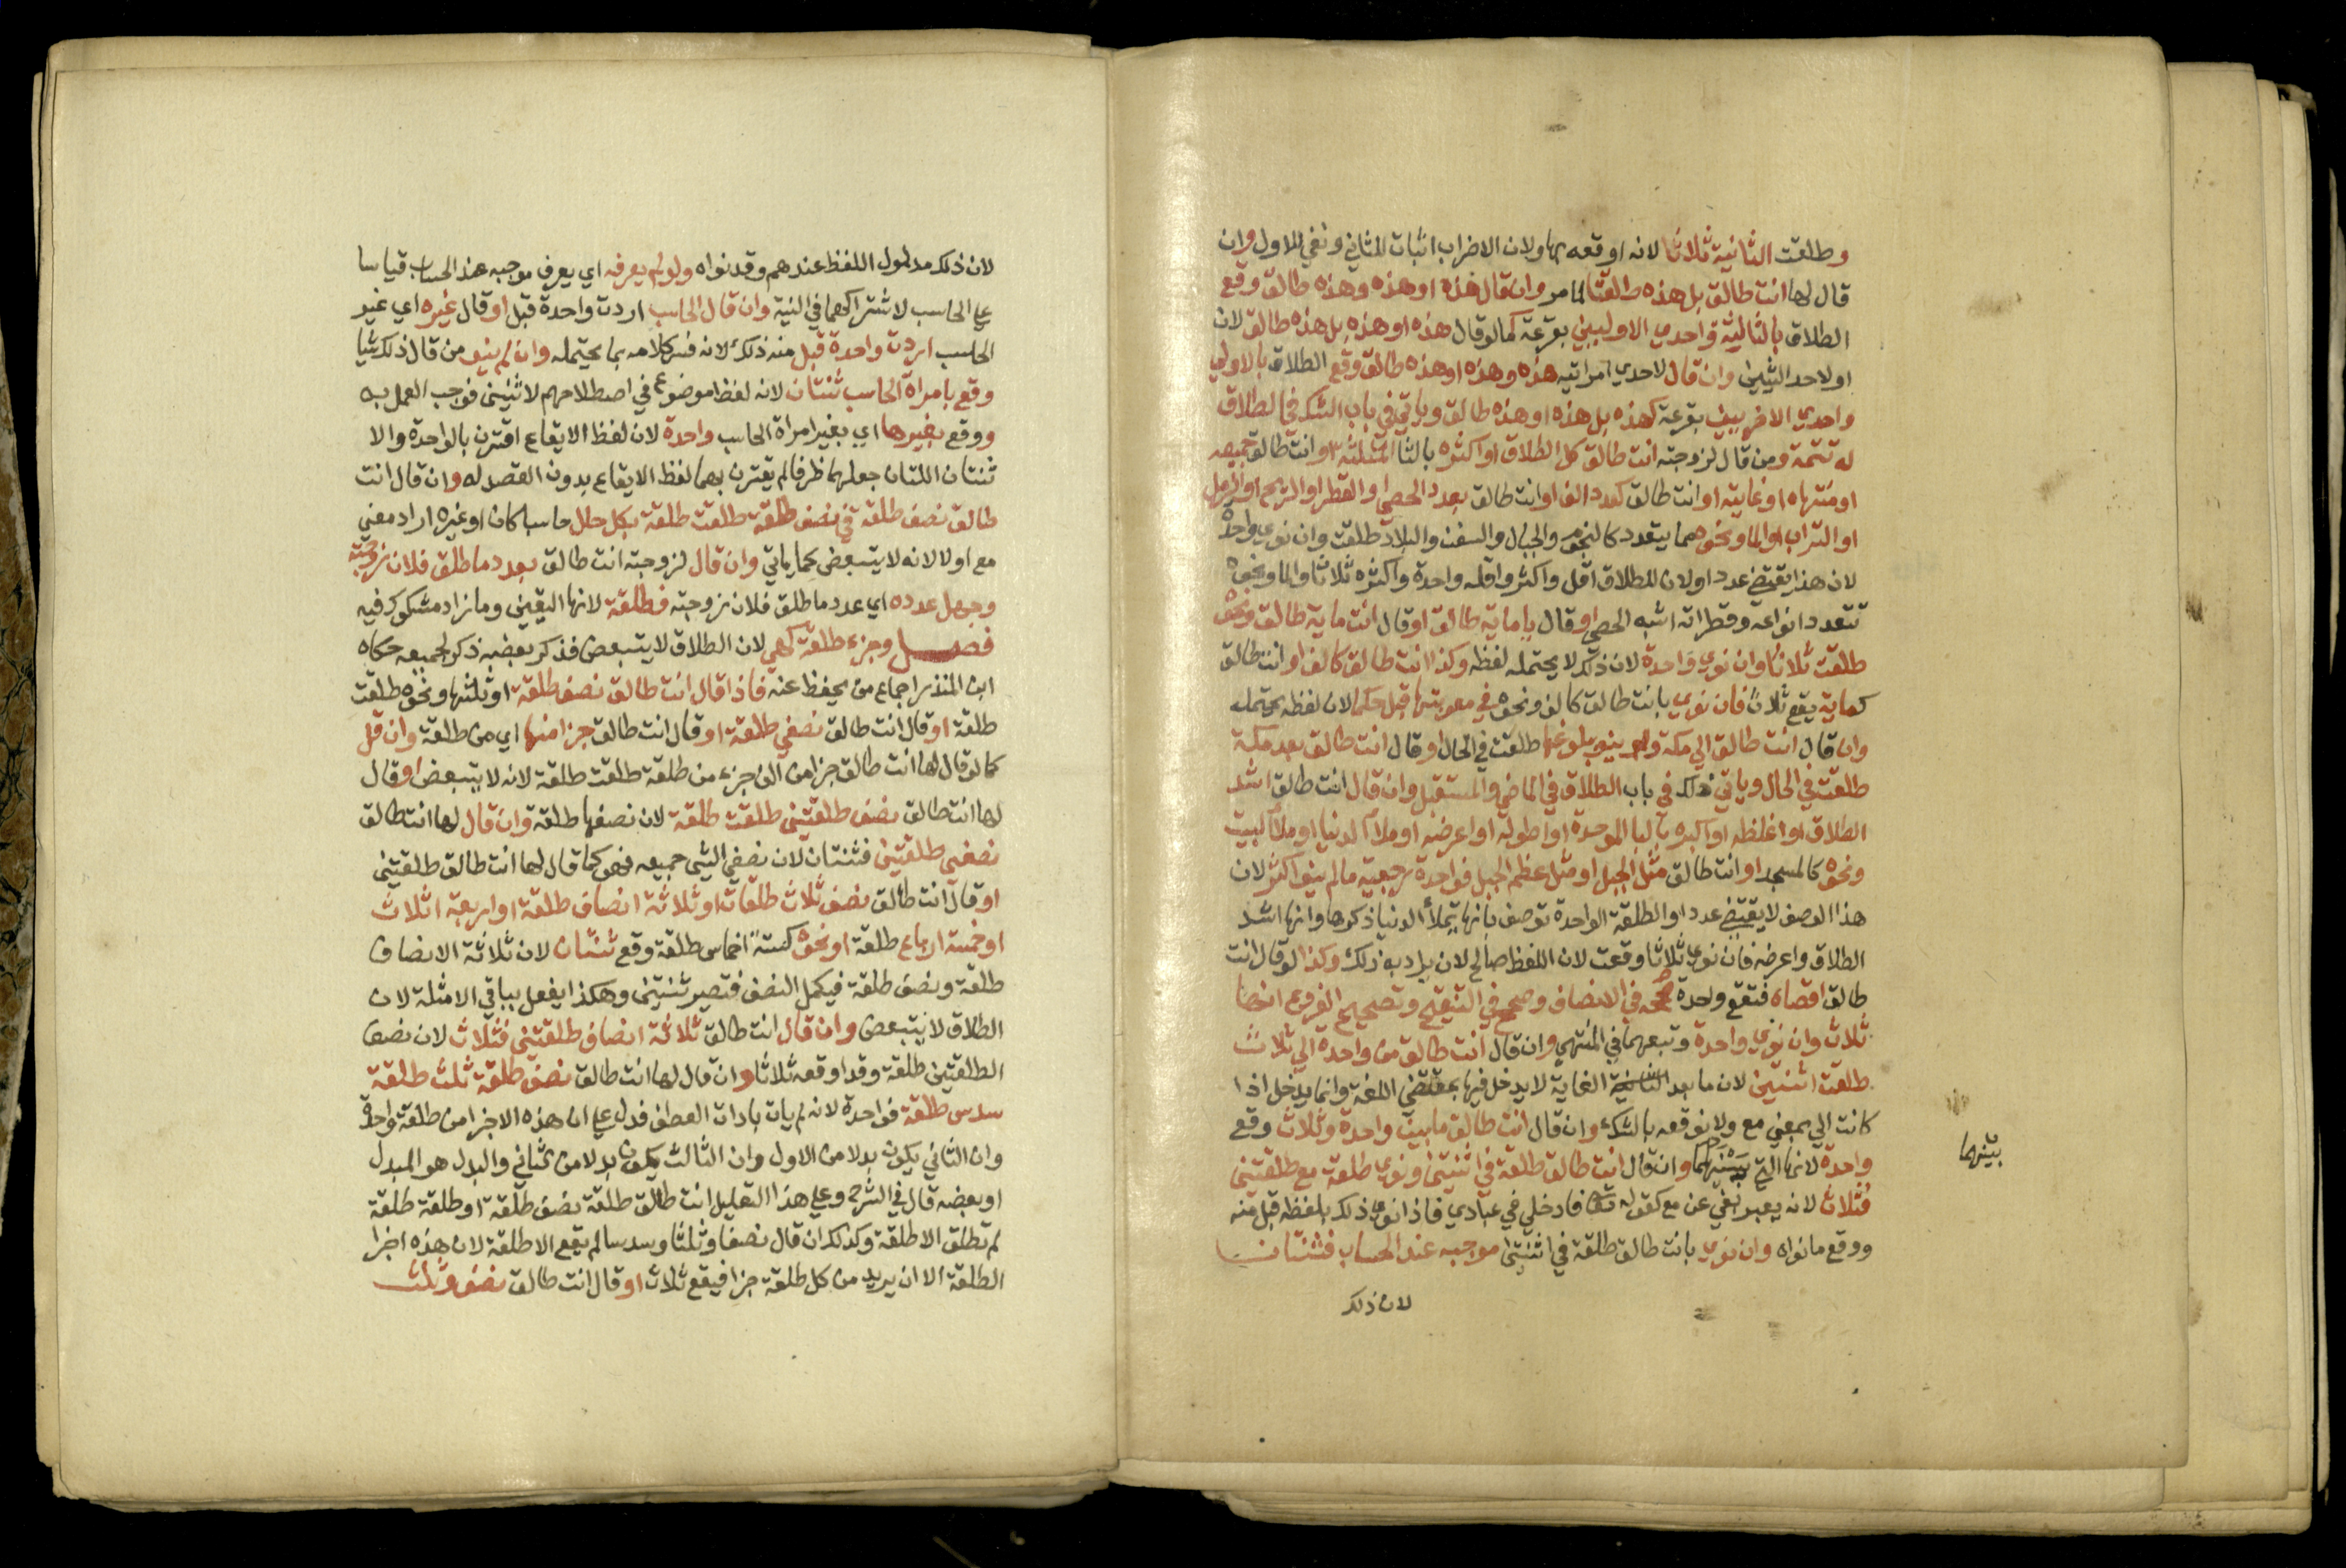 وطلقت الثانية ثلاثا لانه اوقعه بها ولان الاضراب اثبات للثاني ونفي للاول وان
قال لها انت طالق بل هذه طلقتا لما مر وان قال هذه او هذه وهذه طالق وقع
الطلاق بالثالثة واحدي الاوليين بقرعة كما لو قال هذه او هذه بل هذه طالق لان
او لاحد الشيئين وان قال لاحدي امراتيه هذه وهذه او هذه طالق وقع الطلاق بالاولي
واحدي الاخريين بقرعة كهذه بل هذه او هذه طالق وياتي في باب الشك في الطلاق
له تتمة ومن قال لزوجته انت طالق كل الطلاق او اكثره بالثا المثلثة او انت طالق جميعه
او منتهاه او غايته او انت طالق كعدد الف او انت طالق بعدد الحصي او القطر او الريح او الرمل
او التراب او الما ونحوه مما يتعدد كالنجوم والجبال والسفن والبلاد طلقت وان نوي واحدة
لان هذا يقتضي عددا ولان للطلاق اقل واكثر واقله واحدة واكثره ثلاثا والما ونحوه
تتعدد انواعه وقطراته اشبه الحصي او قال يا ماية طالق او قال انت ماية طالق ونحوه
طلقت ثلاثا وان نوي واحدة لان ذلك لا يحتمله لفظه وكذا انت طالق كالف او انت طالق
كماية يقع ثلاث فان نوي بانت طالق كالف ونحوه في صعوبتها قبل حكما لان لفظه يحتمله
وان قال انت طالق الي مكة ولم ينو بلوغها طلقت في الحال او قال انت طالق بعد مكة
طلقت في الحال وياتي ذلك في باب الطلاق في الماضي والمستقبل وان قال انت طالق اشد
الطلاق او اغلظه او اكبره بالبا الموحدة او اطوله او اعرضه او ملا الدنيا او ملا البيت
ونحوه كالمسجد او انت طالق مثل الجبل او مثل عظم الجبل فواحدة رجعية ما لم ينو اكثر لان
هذا الوصف لا يقتضي عددا والطلقة الواحدة توصف بانها تملا الدنيا ذكرها وانها اشد
الطلاق واعرضه فان نوي ثلاثا وقعت لان اللفظ صالح لان يراد به ذلك وكذا لو قال انت
طالق اقصاه فتقع واحدة صححه في الانصاف وصحح في التنقيح وتصحيح الفروع انها
ثلاث وان نوي واحدة وتبعهما في المنتهي وان قال انت طالق من واحدة الي ثلاث
طلقت اثنتين لان ما بعد الغاية لا يدخل فيها بمقتضي اللغة وانما يدخل اذا
كانت الي بمعني مع ولا نوقعه بالشك وان قال انت طالق ما بين واحدة وثلاث وقع
واحدة لانها التي بينهما وان قال انت طالق طلقة في اثنتين ونوي طلقة مع طلقتين
فثلاث لانه يعبر بفي عن مع كقوله تعالي فادخلي في عبادي فاذا نوي ذلك بلفظه قبل منه
ووقع ما نواه وان نوي بانت طالق طلقة في اثنتين موجبه عند الحساب فثنتان
لان ذلك
بينهما
لان ذلك مدلول اللفظ عندهم وقد نواه ولو لم يعرفه اي يعرف موجبه عند الحساب قياسا
علي الحاسب لاشتراكهما في النية وان قال الحاسب اردت واحدة قبل او قال غيره اي غير
الحاسب اردت واحدة قبل منه ذلك لانه فسر كلامه بما يحتمله وان لم ينو من قال ذلك شيا
وقع بامراة الحاسب ثنتان لانه لفظ موضوع في اصطلاحهم لاثنين فوجب العمل به
ووقع بغيرها اي بغير امراة الحاسب واحدة لان لفظ الايقاع اقترن بالواحدة والا
ثنتان اللتان جعلهما ظرفا لم يقترن بهما لفظ الايقاع بدون القصد له وان قال انت
طالق نصف طلقة في نصف طلقة طلقت طلقة بكل حال حاسبا كان او غيره اراد معني
مع او لا لانه لا يتبعض كما ياتي وان قال لزوجته انت طالق بعدد ما طلق فلان زوجته
وجهل عدده اي عدد ما طلق فلان زوجته فطلقة لانها اليقين وما زاد مشكوك فيه
فصل وجزء طلقة كهي لان الطلاق لا يتبعض فذكر بعضه ذكر لجميعه حكاه
ابن المنذر اجماع من يحفظ عنه فاذا قال انت طالق نصف طلقة او ثلثها ونحوه طلقت
طلقة او قال انت طالق نصفي طلقة او قال انت طالق جزا منها اي من طلقة وان قل
كما لو قال لها انت طالق جزا من الف جزء من طلقة طلقت طلقة لانه لا يتبعض او قال
لها انت طالق نصف طلقتين طلقت طلقة لان نصفها طلقة وان قال لها انت طالق
نصفي طلقتين فثنتان لان نصفي الشي جميعه فهو كما قال لها انت طالق طلقتين
او قال انت طالق نصف ثلاث طلقات او ثلاثة انصاف طلقة او اربعة اثلاث
او خمسة ارباع طلقة او نحوه كستة اخماس طلقة وقع ثنتان لان ثلاثة الانصاف
طلقة ونصف طلقة فيكمل النصف فتصير ثنتين وهكذا يفعل بباقي الامثلة لان
الطلاق لا يتبعض وان قال انت طالق ثلاثة انصاف طلقتين فثلاث لان نصف
الطلقتين طلقة وقد اوقعه ثلاثا وان قال لها انت طالق نصف طلقة ثلث طلقة
سدس طلقة فواحدة لانه لم يات بادات العطف فدل علي ان هذه الاجزا من طلقة واحدة
وان الثاني يكون بدلا من الاول وان الثالث يكون بدلا من الثاني والبدل هو المبدل
او بعضه قال في الشرح وعلي هذا التعليل انت طالق طلقة نصف طلقة او طلقة طلقة
لم تطلق الا طلقة وكذلك ان قال نصفا وثلثا وسدسا لم يقع الا طلقة لان هذه اجزا
الطلقة الا ان يريد من كل طلقة جزا فيقع ثلاث او قال انت طالق نصف وثلث